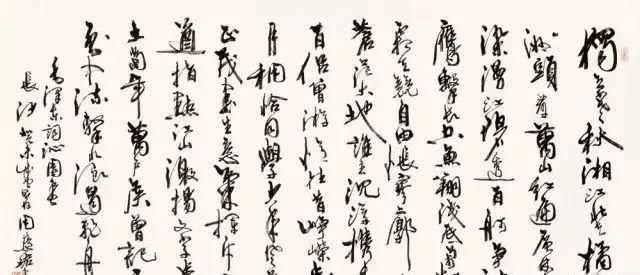 獨立寒秋湘江北去橘
洲頭看萬山紅遍層林
染漫江碧透百舸爭
鷹擊長空魚翔淺底萬
霜天競自由悵寥廓
蒼茫大地誰主沉浮攜
百侶曾游憶往昔崢嶸歲
月稠恰同學少年風
正茂書生意氣揮斥
遒指點江山激揚文字
土當年萬户侯曾記
到中流擊水浪遏飛舟
毛澤東詞沁園春
長沙